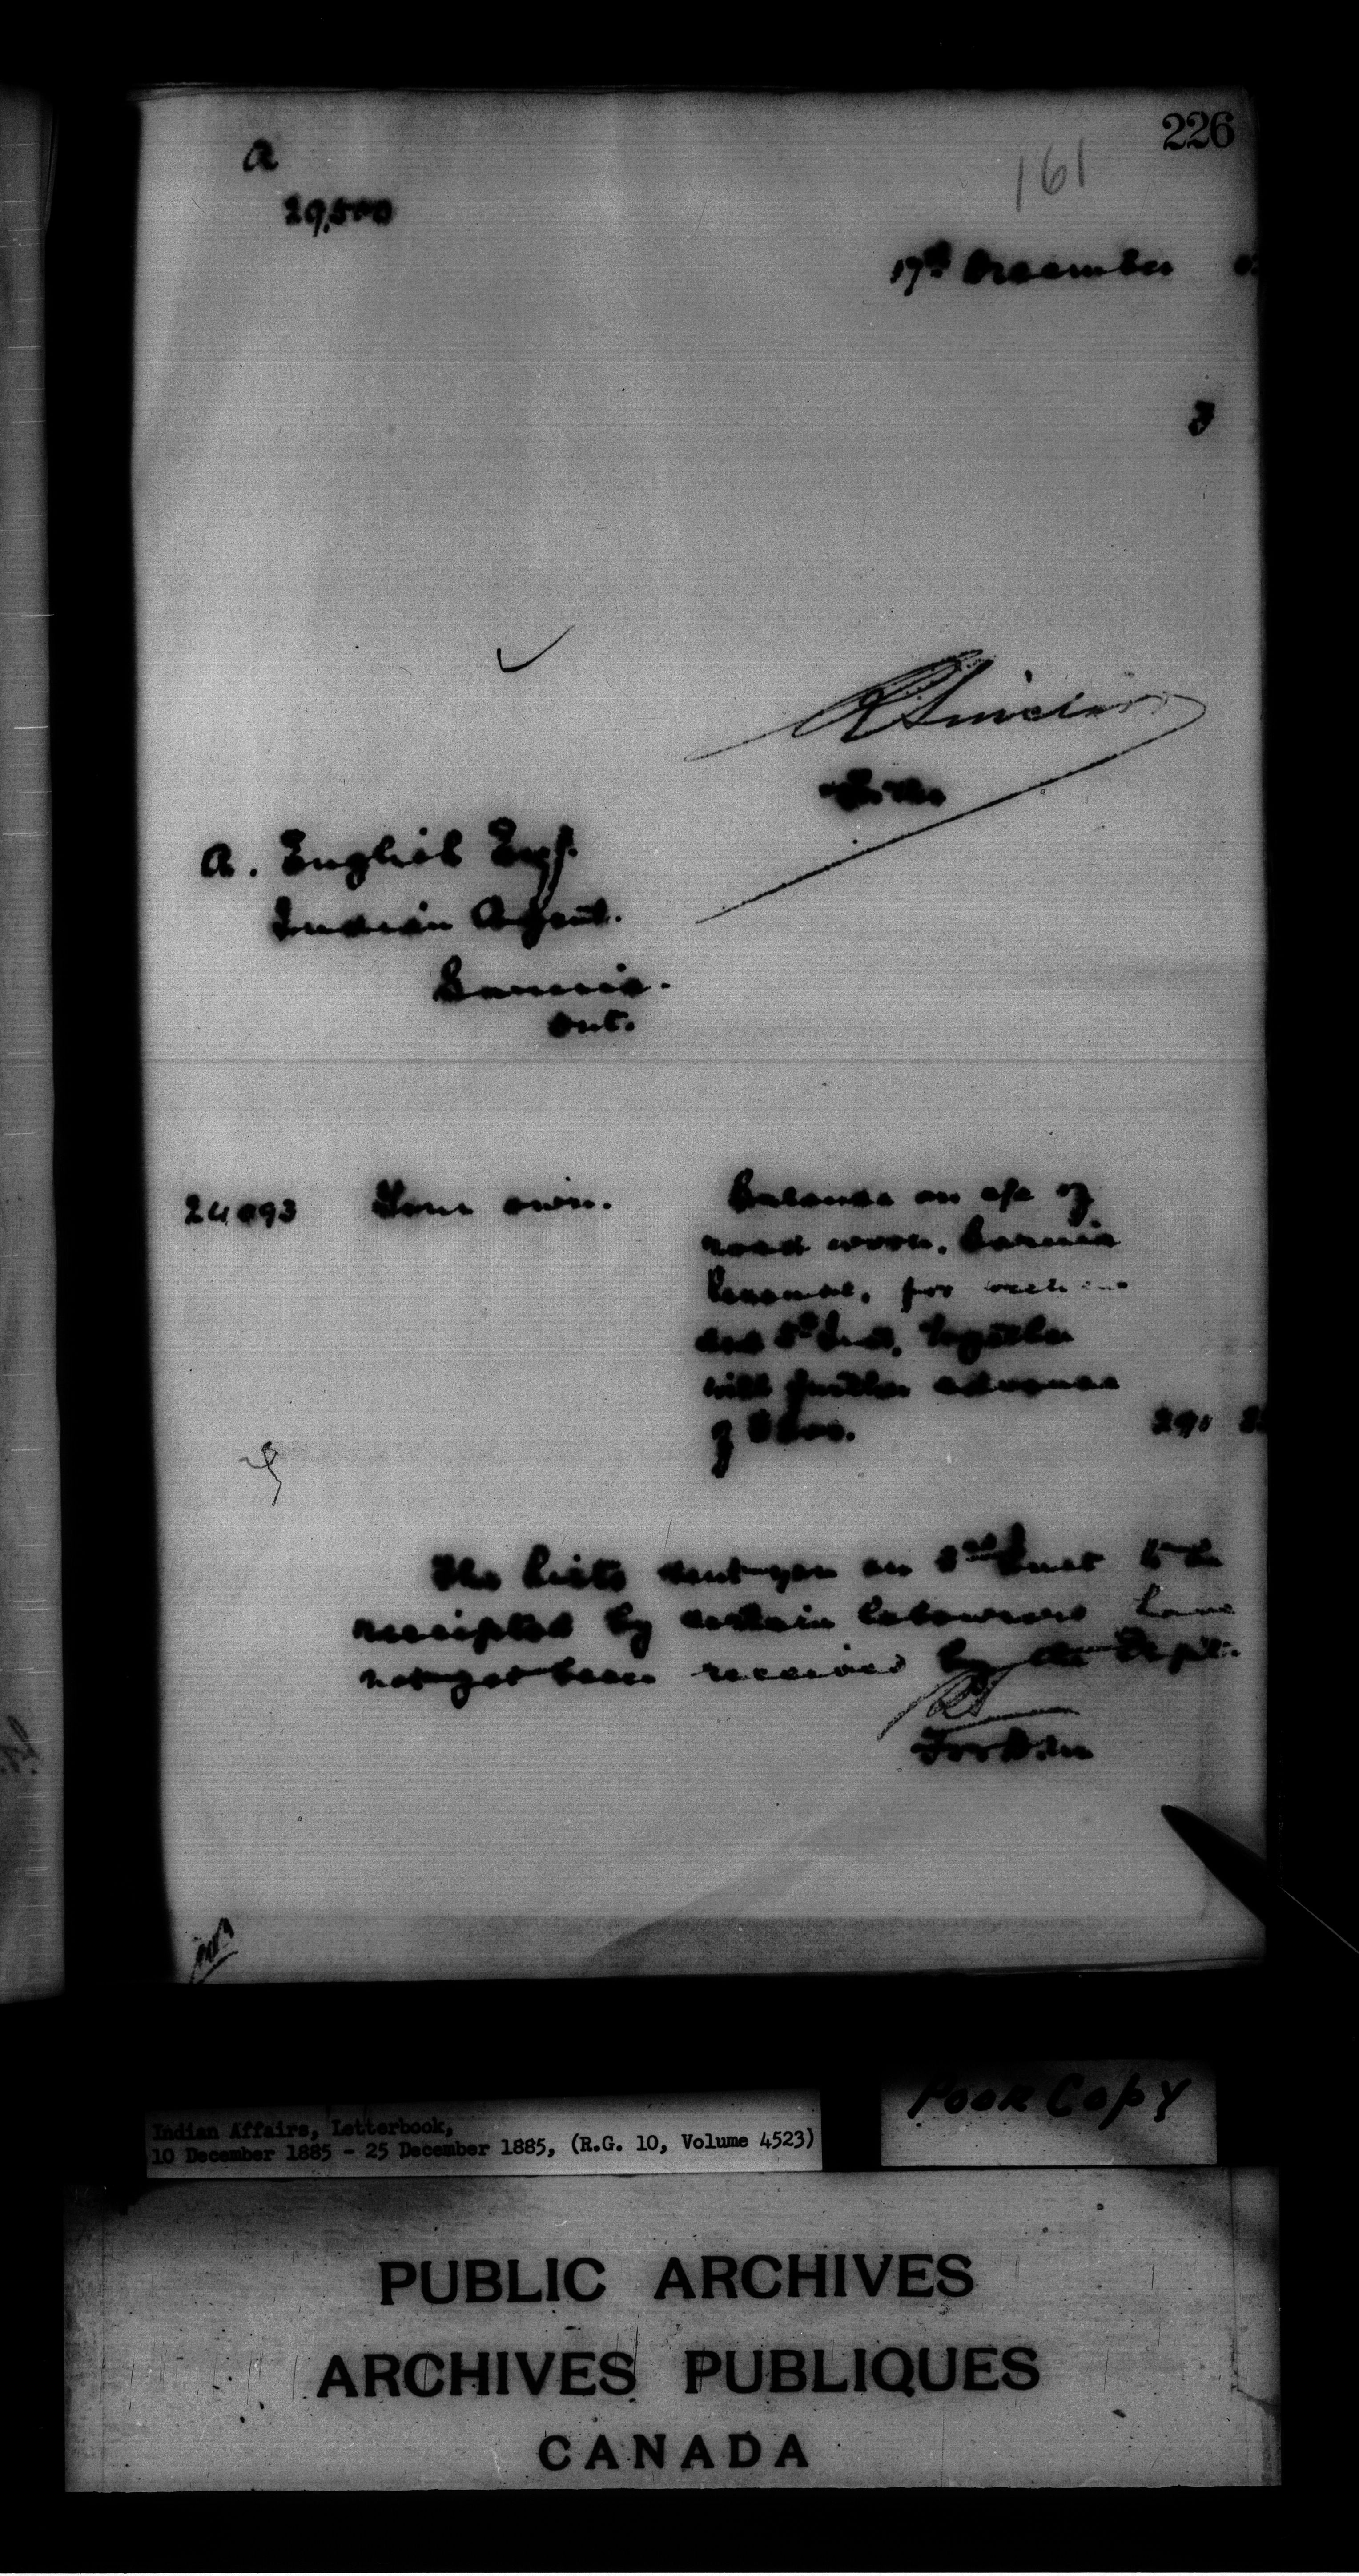 226
161
A
29,500
17th December
3
R Sinclair
A. English Esq.
Indian Agent.
Sarnia.
Ont.
24093 Your own. Balance on a/c of
road work, Sarnia
Reserve, for
Inst, together
with further advance
of 290
The lists sent you on Inst to be
receipted by certain labourers have
not yet been received by the Dept.
RS
PooR Copy
Indian Affairs, Letterbook,
10 December 1885 - 25 December 1885, (R.G. 10, Volume 4523)
PUBLIC ARCHIVES
ARCHIVES PUBLIQUES
CANADA